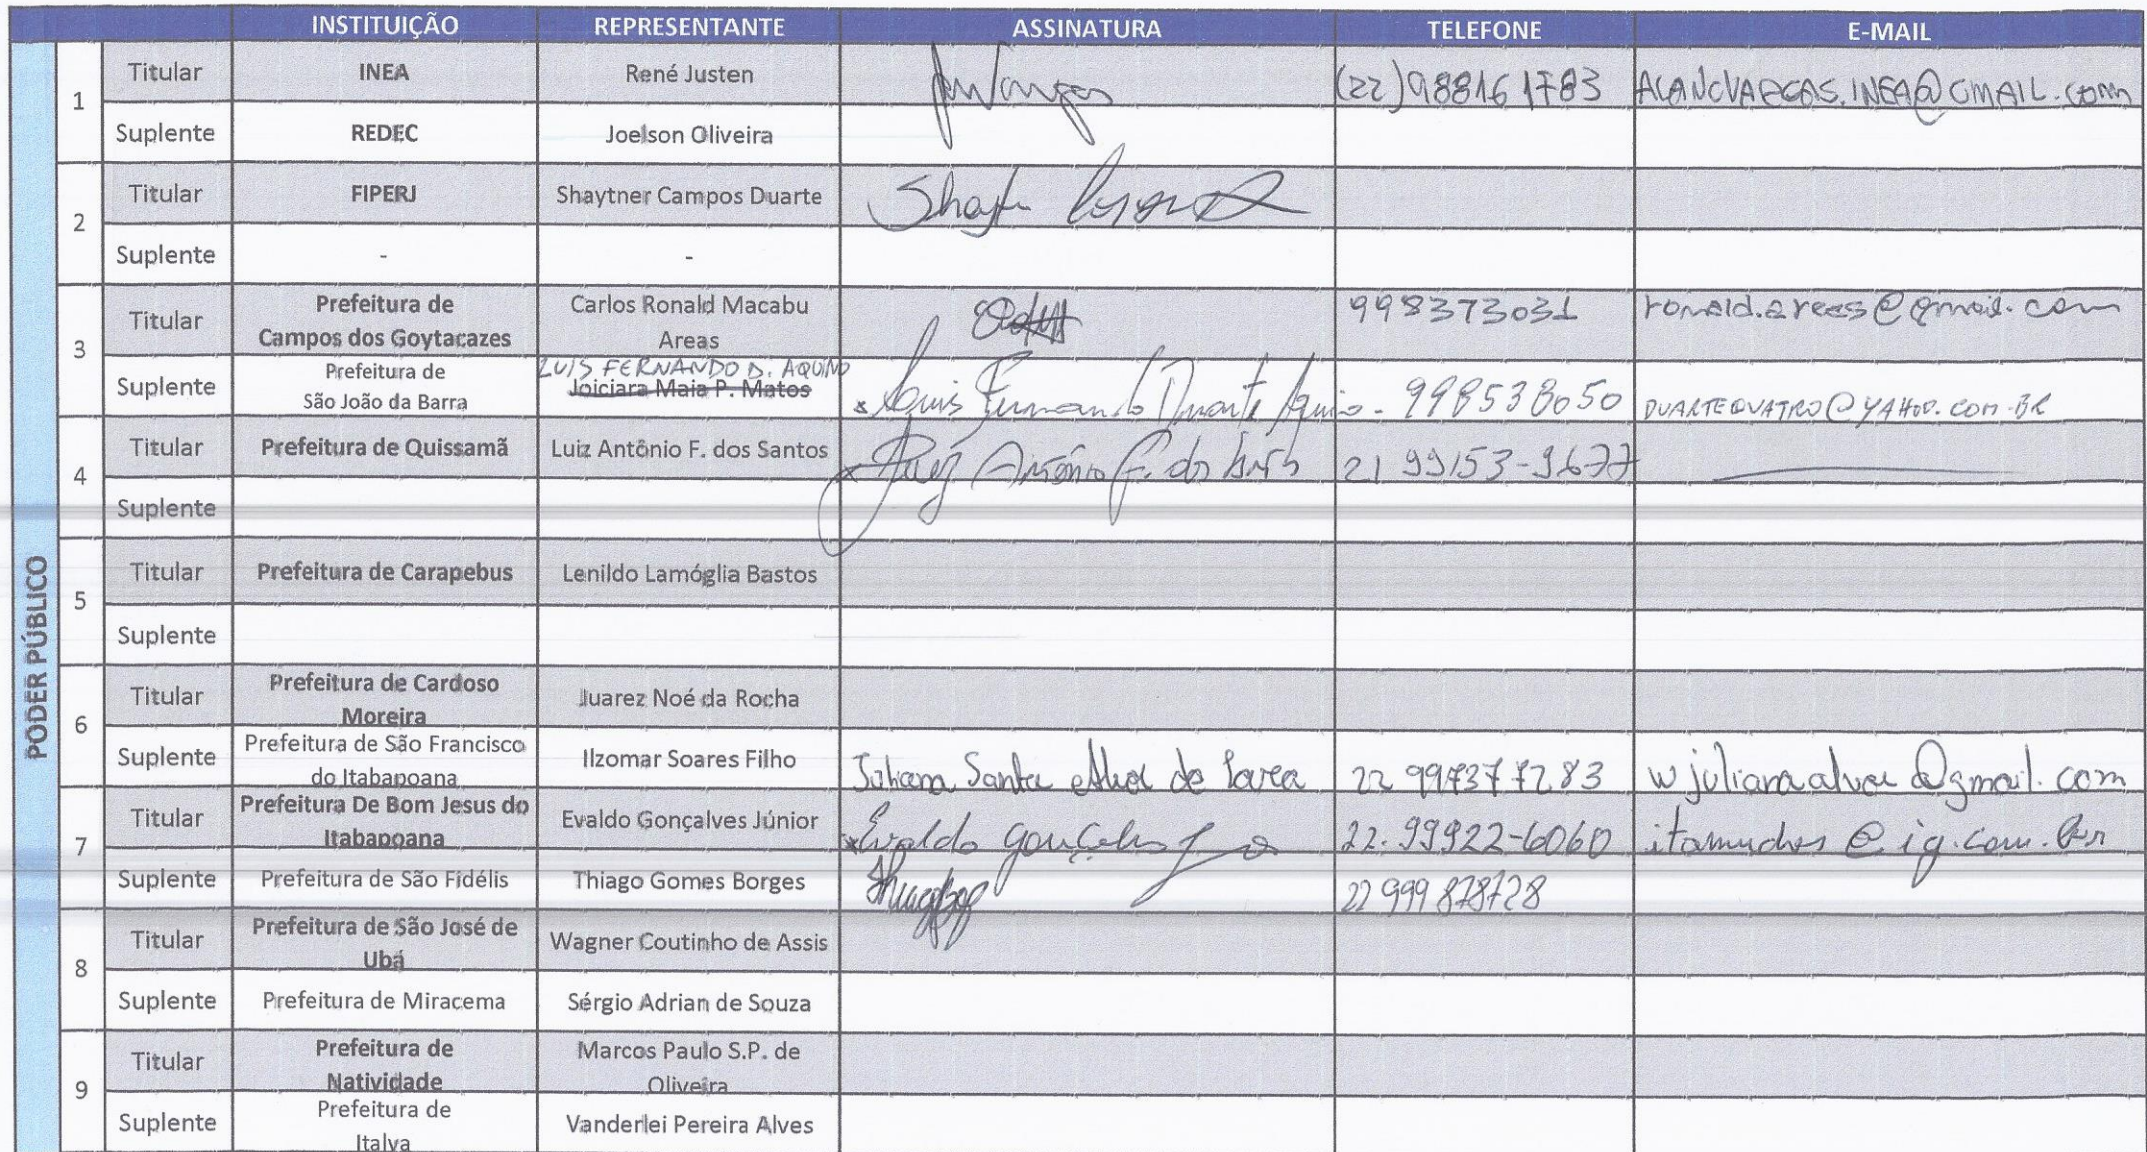 INSTITUIÇÃO REPRESENTANTE ASSINATURA TELEFONE E-MAIL
PODER PÚBLICO
1
Titular INEA René Justen (22) 988161783 ALANCVARGAS.INEA@GMAIL.com
Suplente REDEC Joelson Oliveira
2
Titular FIPERJ Shaytner Campos Duarte
Suplente - -
3
Titular Prefeitura de
Campos dos Goytacazes Carlos Ronald Macabu
Areas 998373031 ronald.areas@gmail.com
Suplente Prefeitura de
São João da Barra LUIS FERNANDO D. AQUINO
Joiciara Maia P. Matos Luis Fernando Duarte Aquino - 998538050 DUARTEQUATRO@YAHOO.COM.BR
4
Titular Prefeitura de Quissamã Luiz Antônio F. dos Santos Luiz Antônio F. dos Santos 21 99153-9677
Suplente
5
Titular Prefeitura de Carapebus Lenildo Lamóglia Bastos
Suplente
6
Titular Prefeitura de Cardoso
Moreira Juarez Noé da Rocha
Suplente Prefeitura de São Francisco
do Itabapoana Ilzomar Soares Filho Juliana Santa de 22 997377283 @gmail.com
7
Titular Prefeitura De Bom Jesus do
Itabapoana Evaldo Gonçalves Júnior Evaldo Gonçalves 22.99922-6060 @ig.com.br
Suplente Prefeitura de São Fidélis Thiago Gomes Borges 22 999878728
8
Titular Prefeitura de São José de
Ubá Wagner Coutinho de Assis
Suplente Prefeitura de Miracema Sérgio Adrian de Souza
9
Titular Prefeitura de
Natividade Marcos Paulo S.P. de
Oliveira
Suplente Prefeitura de
Italva Vanderlei Pereira Alves